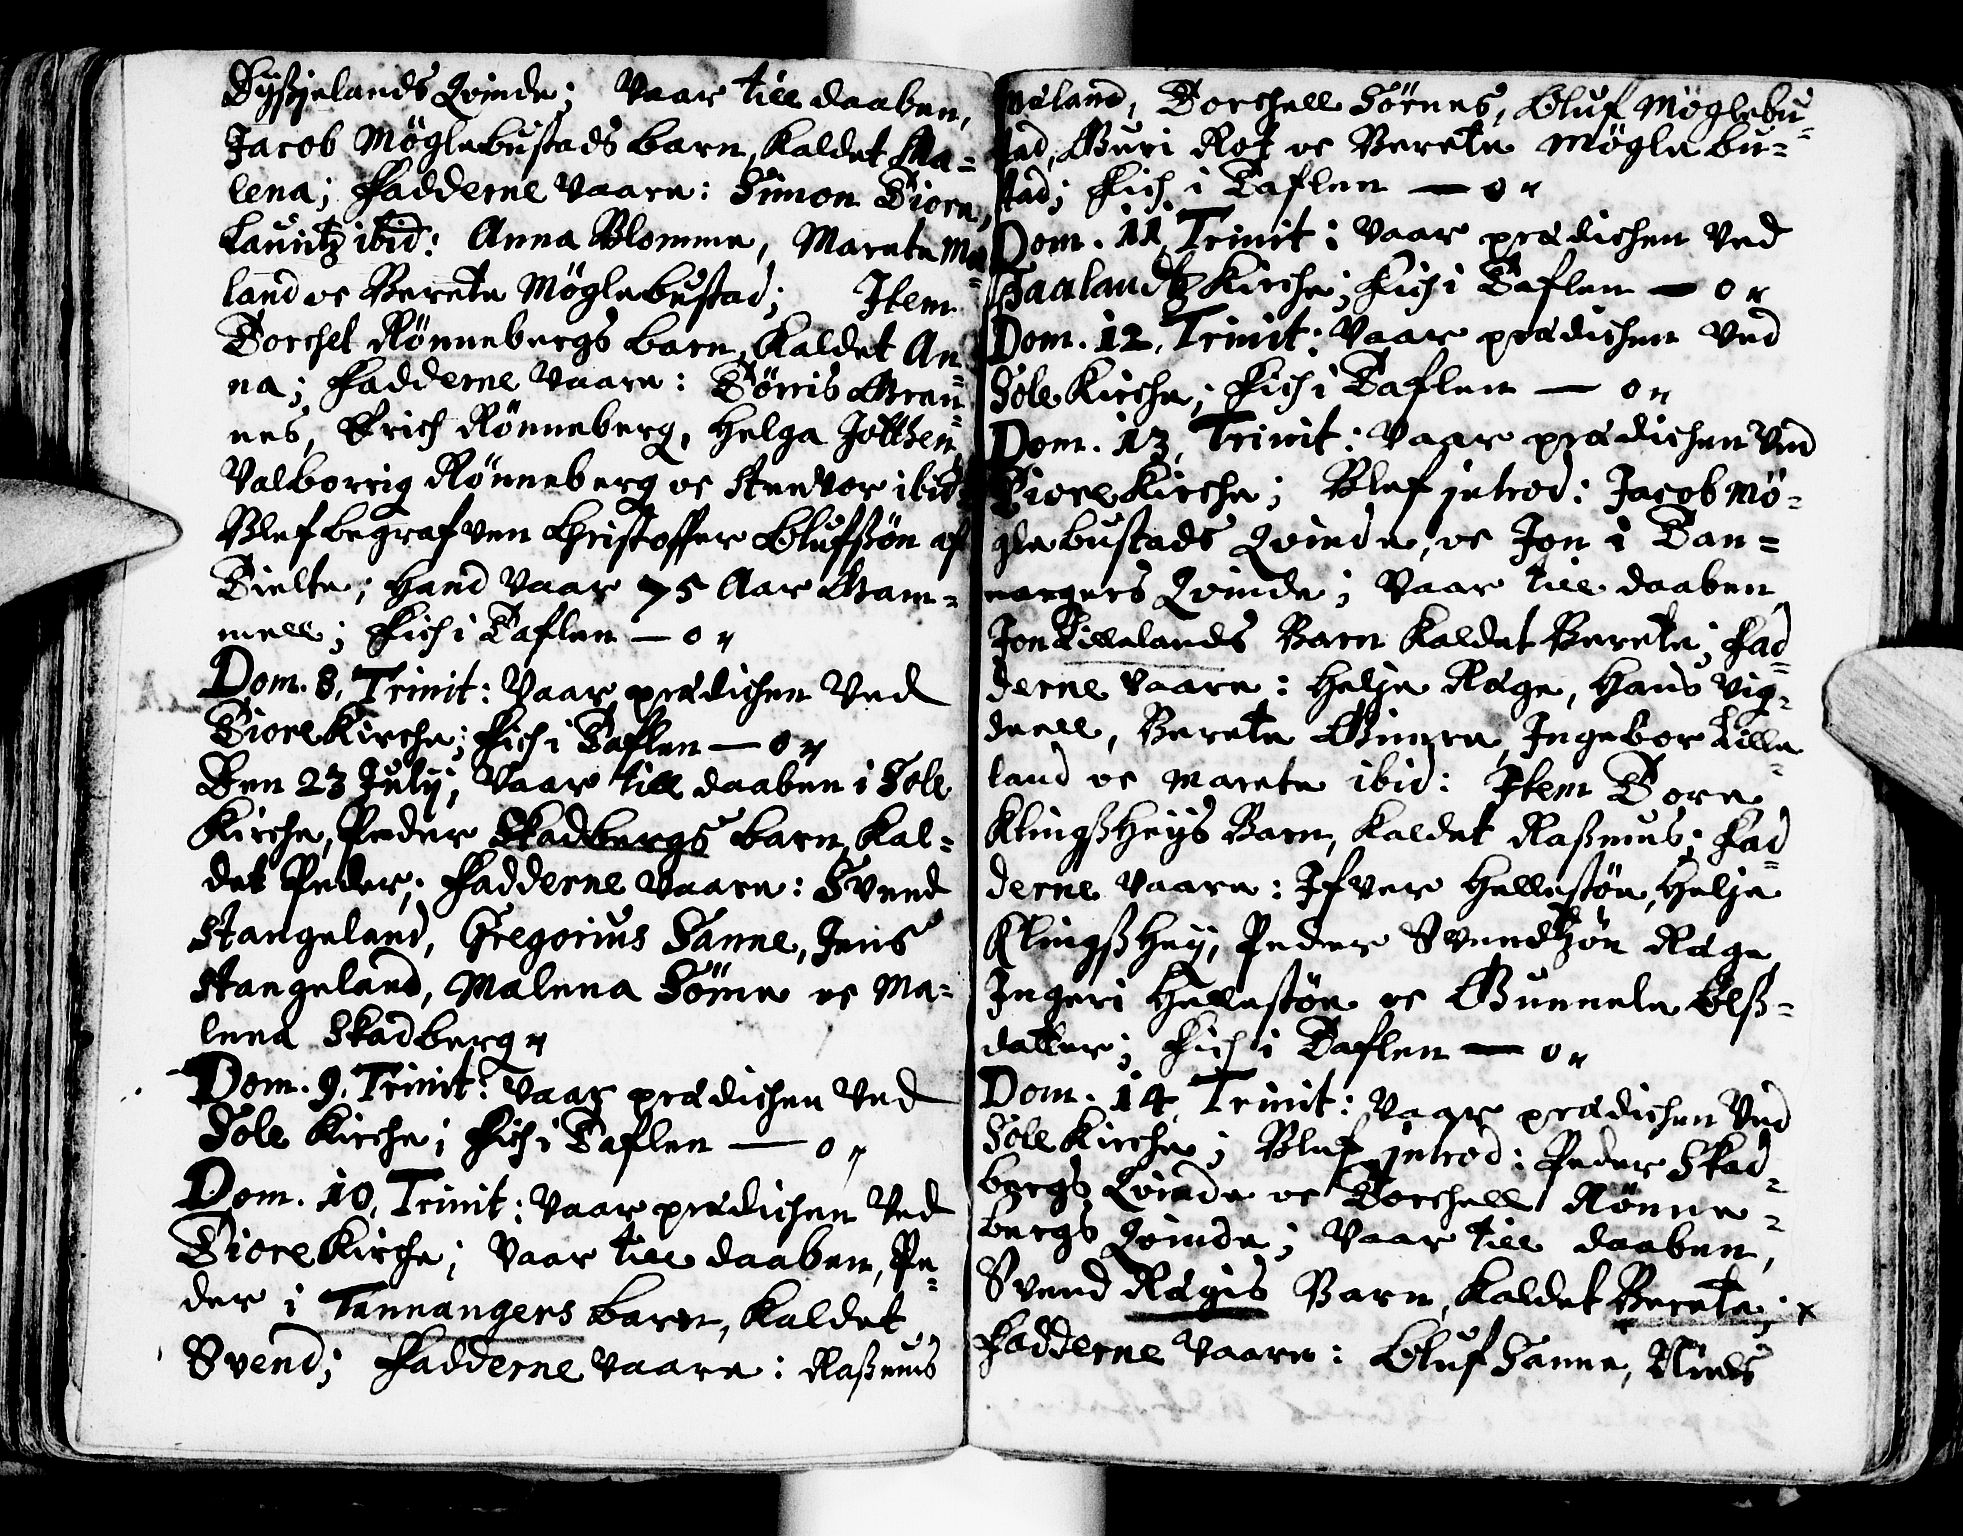 Dysjelands Qvinde; Vaar till daaben,
Jacob Möglebustads barn, kaldet Ma-
lena; Fadderne vaare: Simon Tiora,
Lauritz ibid: Anna Blomme, Marete Mæ-
land oc Berete Möglebustad; Item
Torchel Rönnebergs barn, kaldet An-
na; Fadderne vaare: Törris Gran-
nes, Erich Rönneberg, Helga Jåtthen,
Valborrig Rönneberg oc Steenvor ibid:
Blef begrafven Christoffer Olufßön af
Tielte; hand vaar 75 Aar Gam-
mell; Fich i Taflen — o „
Dom. 8, Trinit: Vaar prædichen ved
Tiore Kirche; Fich i Taflen — o „
Den 23 July, Vaar till daaben i Sole
Kirche, Peder Skadbergs barn, kal-
det Peder; Fadderne vaare: Svend
Stangeland, Gregorius Sanne, Jens
Stangeland, Malena Söme oc Ma-
lena Skadberg „
Dom. 9, Trinit: Vaar prædichen ved
Sole Kirche; Fich i Taflen — o „
Dom. 10, Trinit: Vaar prædichen ved
Tiore Kirche; Vaar till daaben, Pe-
der i Tannangers barn, kaldet
Svend; Fadderne vaare: Raßmus
Meland, Torchell Sörnes, Oluf Möglebu-
stad, Guri Rot oc Berete Möglebu-
stad; Fich i Taflen — o „
Dom. 11, Trinit: Vaar prædichen ved
Haalandtz Kirche; Fich i Taflen — o „
Dom. 12, Trinit: Vaar prædichen ved
Sole Kirche; Fich i Taflen — o „
Dom. 13, Trinit: Vaar prædichen ved
Tiore Kirche; Blef introd: Jacob Mö-
glebustads Qvinde, oc Jon i Tan-
nangers Qvinde; Vaar till daaben
Jon Lillelands Barn kaldet Berete; Fad-
derne vaare: Helje Ræge, Hans Vig-
deell, Berete Gimre, Ingebor Lille-
land oc Marete ibid: Item Tore
Klingßheys Barn, kaldet Raßmus; Fad-
derne vaare: Ifver Hellestöe, Helje
Klingßhey, Peder Svendtzön Ræge,
Ingeri Hellestöe oc Gunnele Olß-
datter; Fich i Taflen — o „
Dom. 14, Trinit: Vaar prædichen ved
Sole Kirche; Blef introd: Peder Skad-
bergs Qvinde oc Torchell Rönne-
bergs Qvinde; Vaar till daaben,
Svend Rægis Barn, kaldet Berete; x
Fadderne vaare: Oluf Sanne, Niels